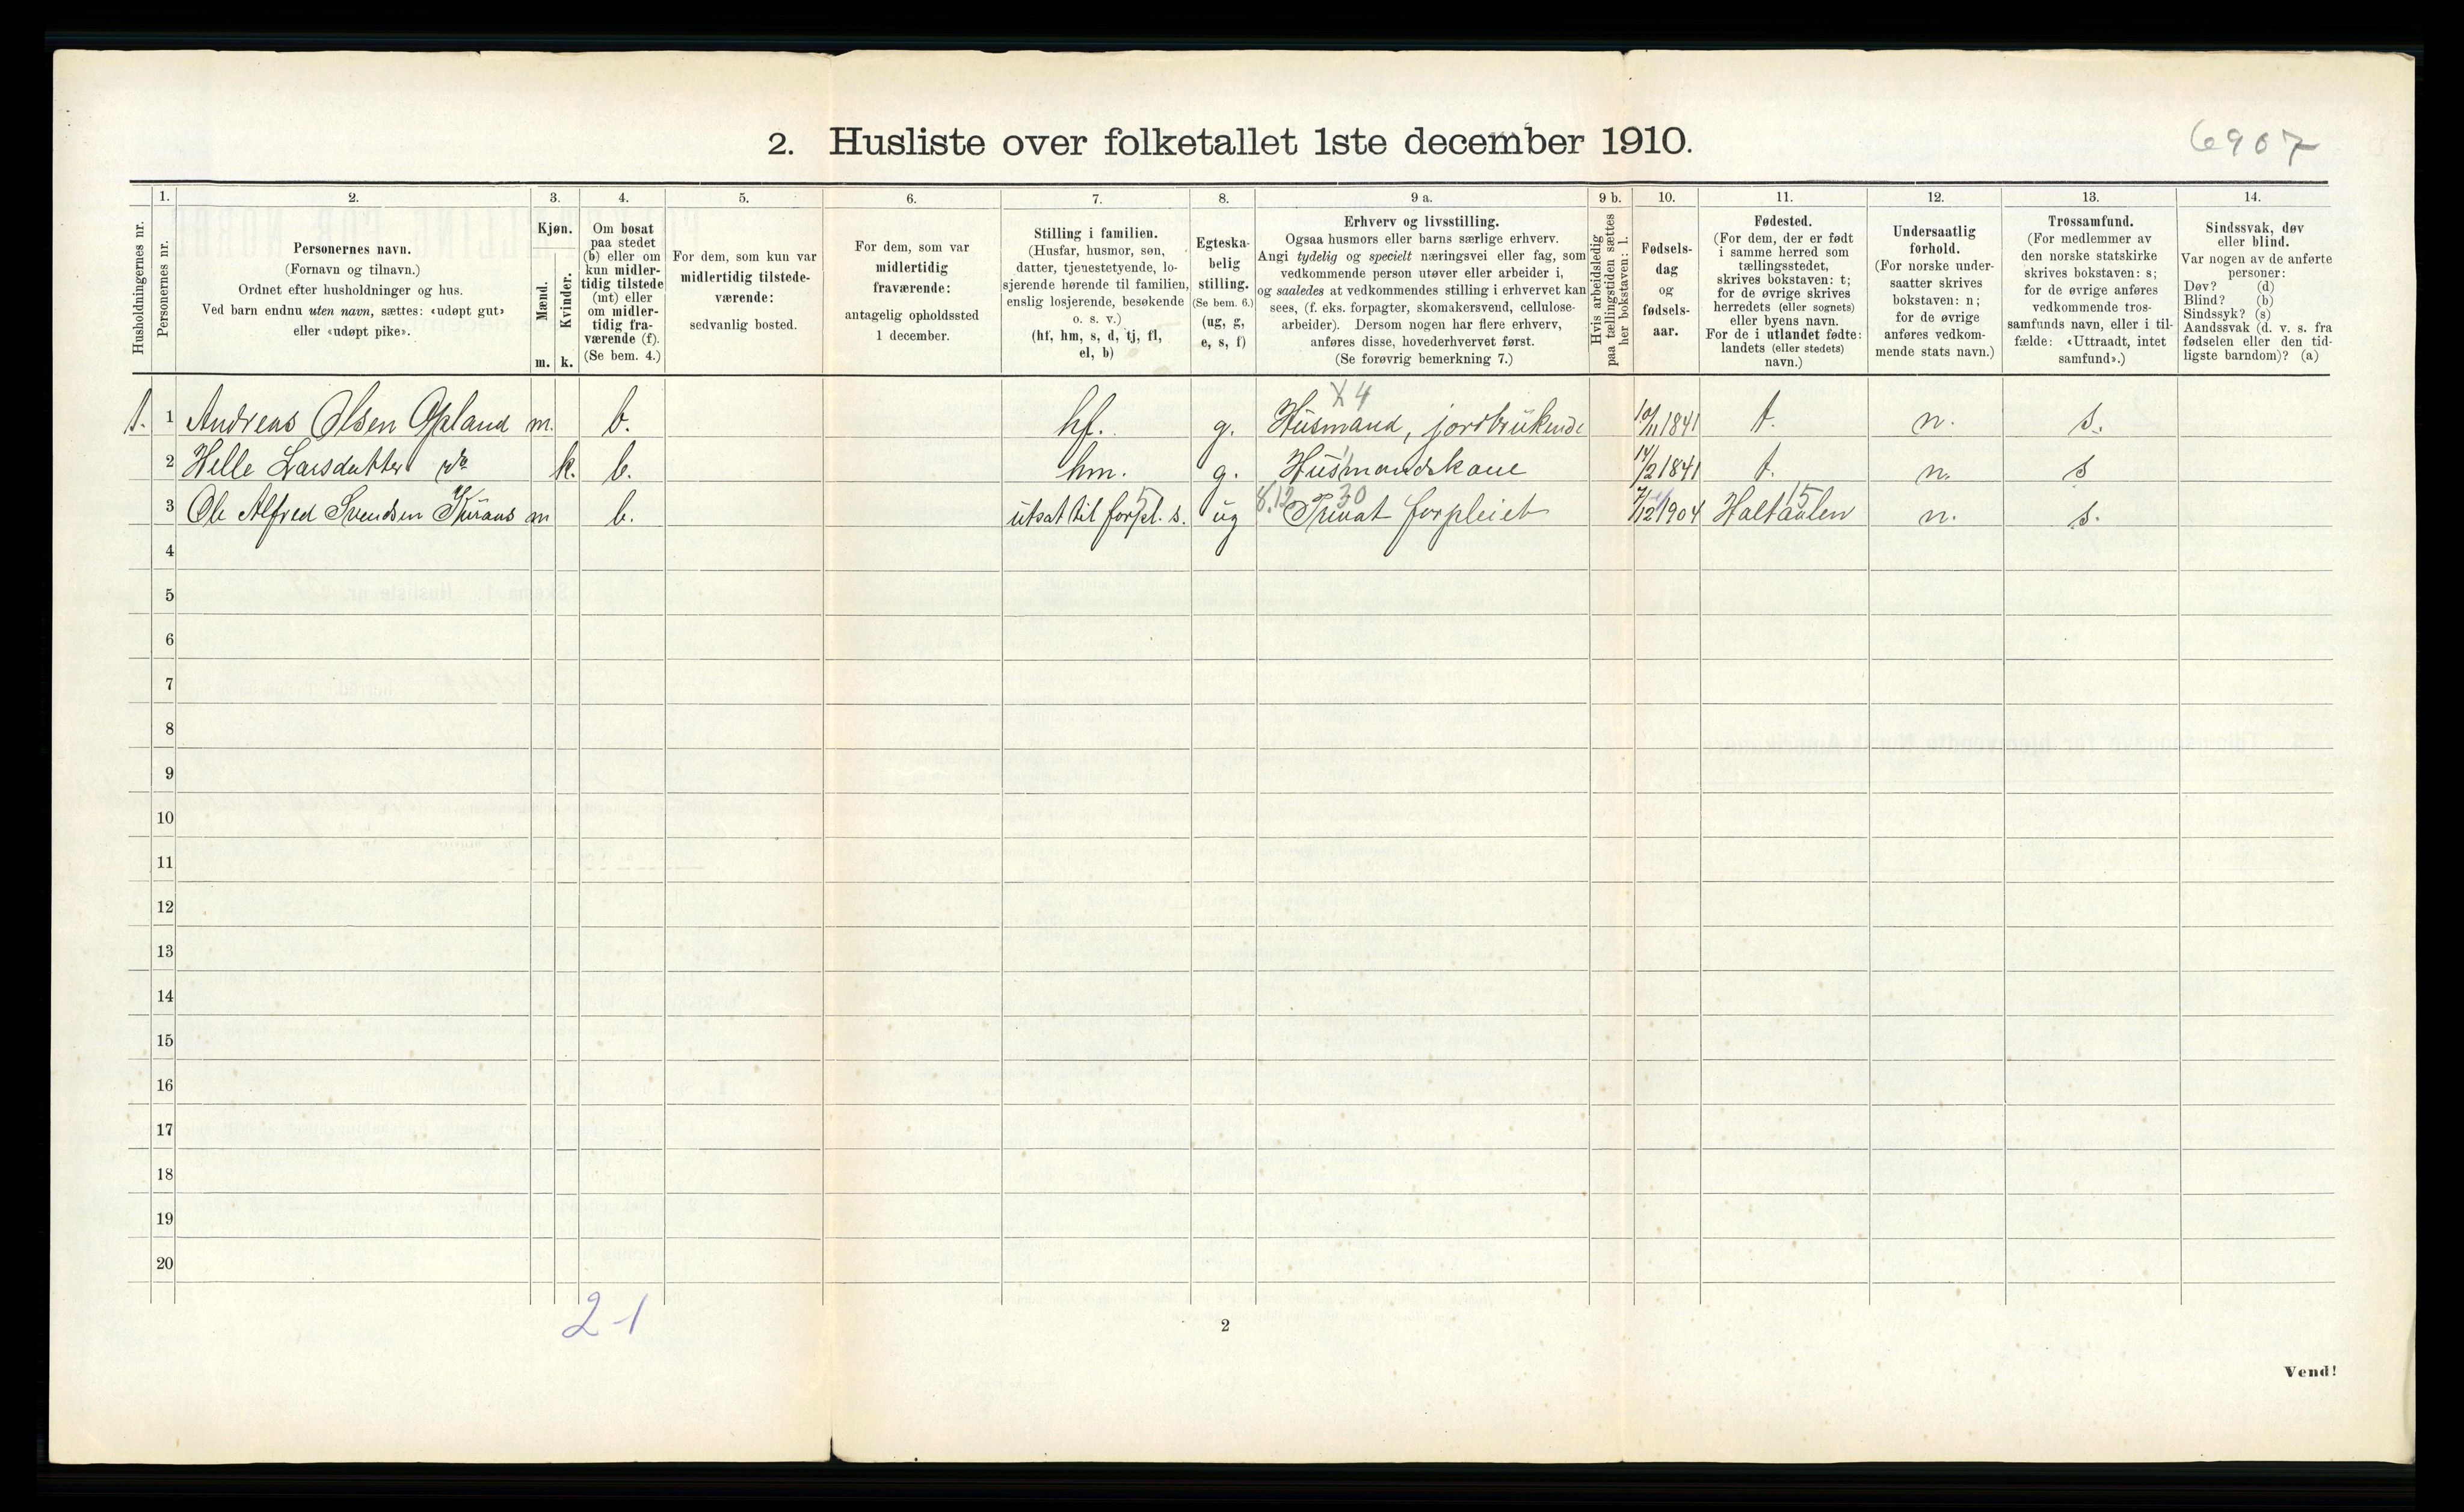 2. Husliste over folketallet 1ste december 1910.
6907
Husholdningernes nr.
1.
Personernes nr.
2.
Personernes navn.
(Fornavn og tilnavn.)
Ordnet efter husholdninger og hus.
Ved barn endnu uten navn, sættes: «udøpt gut»
eller «udøpt pike».
3.
Kjøn.
Mænd.
Kvinder.
m. k.
4.
Om bosat
paa stedet
(b) eller om
kun midler-
tidig tilstede
(mt) eller
om midler-
tidig fra-
værende (f).
(Se bem. 4.)
5.
For dem, som kun var
midlertidig tilstede-
værende:
sedvanlig bosted.
6.
For dem, som var
midlertidig
fraværende:
antagelig opholdssted
1 december.
7.
Stilling i familien.
(Husfar, husmor, søn,
datter, tjenestetyende, lo-
sjerende hørende til familien,
enslig losjerende, besøkende
o. s. v.)
(hf, hm, s, d, tj, fl,
el, b)
8.
Egteska-
belig
stilling.
(Se bem. 6.)
(ug, g,
e, s, f)
9 a.
Erhverv og livsstilling.
Ogsaa husmors eller barns særlige erhverv.
Angi tydelig og specielt næringsvei eller fag, som
vedkommende person utøver eller arbeider i,
og saaledes at vedkommendes stilling i erhvervet kan
sees, (f. eks. forpagter, skomakersvend, cellulose-
arbeider). Dersom nogen har flere erhverv,
anføres disse, hovederhvervet først.
(Se forøvrig bemerkning 7.)
9 b.
Hvis arbeidsledig
paa tællingstiden sættes
her bokstaven: l.
10.
Fødsels-
dag
og
fødsels-
aar.
11.
Fødested.
(For dem, der er født
i samme herred som
tællingsstedet,
skrives bokstaven: t;
for de øvrige skrives
herredets (eller sognets)
eller byens navn.
For de i utlandet fødte:
landets (eller stedets)
navn.)
12.
Undersaatlig
forhold.
(For norske under-
saatter skrives
bokstaven: n;
for de øvrige
anføres vedkom-
mende stats navn.)
13.
Trossamfund.
(For medlemmer av
den norske statskirke
skrives bokstaven: s;
for de øvrige anføres
vedkommende tros-
samfunds navn, eller i til-
fælde: «Uttraadt, intet
samfund».)
14.
Sindssvak, døv
eller blind.
Var nogen av de anførte
personer:
Døv? (d)
Blind? (b)
Sindssyk? (s)
Aandssvak (d. v. s. fra
fødselen eller den tid-
ligste barndom)? (a)
X 4
1. 1 Andreas Olsen Opland m. b. hf. g. Husmand, jordbrukende 10/11 1841 t. n. s.
2 Helle Larsdatter do k. b. hm. g. Husmandskone 14/2 1841 t. n. s
5 8.12 30 15
3 Ole Alfred Svendsen m b. utsat til forpl. s. ug Privat forpleiet 7/12 1904 Haltaalen n. s.
4
5
6
7
8
9
10
11
12
13
14
15
16
17
18
19
20
2-1
2
Vend!